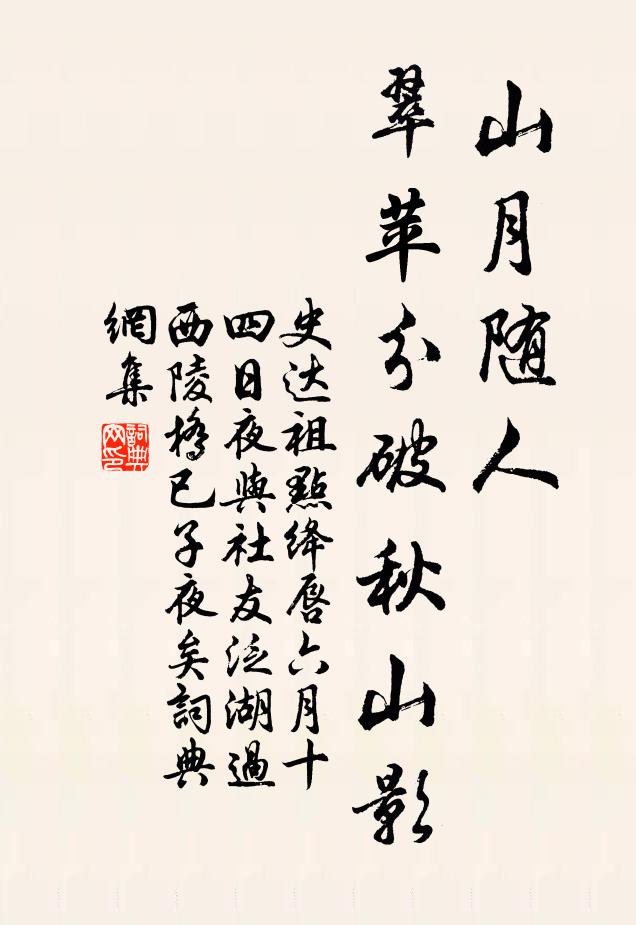 山月随人
翠苹分破秋山影
史达祖點绛唇六月十
四日夜與社友泛湖過
西陵橋已子夜矣詞典
網集
詞典
网印